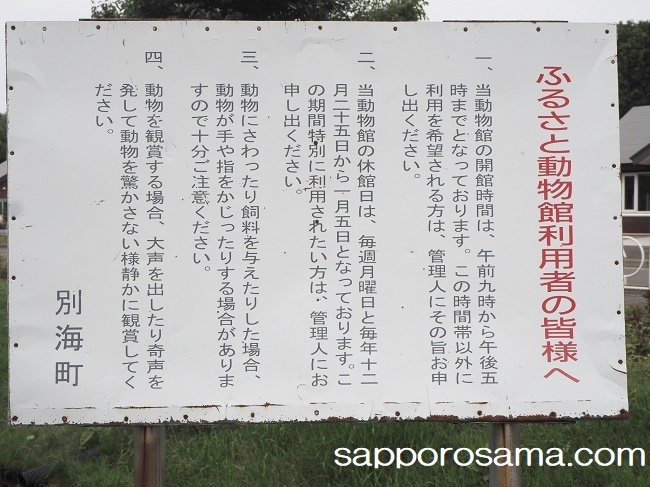 ふるさと動物館利用者の皆様へ
一、当動物館の開館時間は、午前九時から午後五
時までとなっております。この時間帯以外に
利用を希望される方は、管理人にその旨お申
し出ください。
二、当動物館の休館日は、毎週月曜日と毎年十二
月二十五日から一月五日となっております。こ
の期間特別に利用されたい方は、管理人にお
申し出ください。
三、動物にさわったり飼料を与えたりした場合、
動物が手や指をかじったりする場合がありま
すので十分ご注意ください。
四、動物を観賞する場合、大声を出したり奇声を
発して動物を驚かさない様静かに観賞してく
ださい。
別海町
sapporosama.com